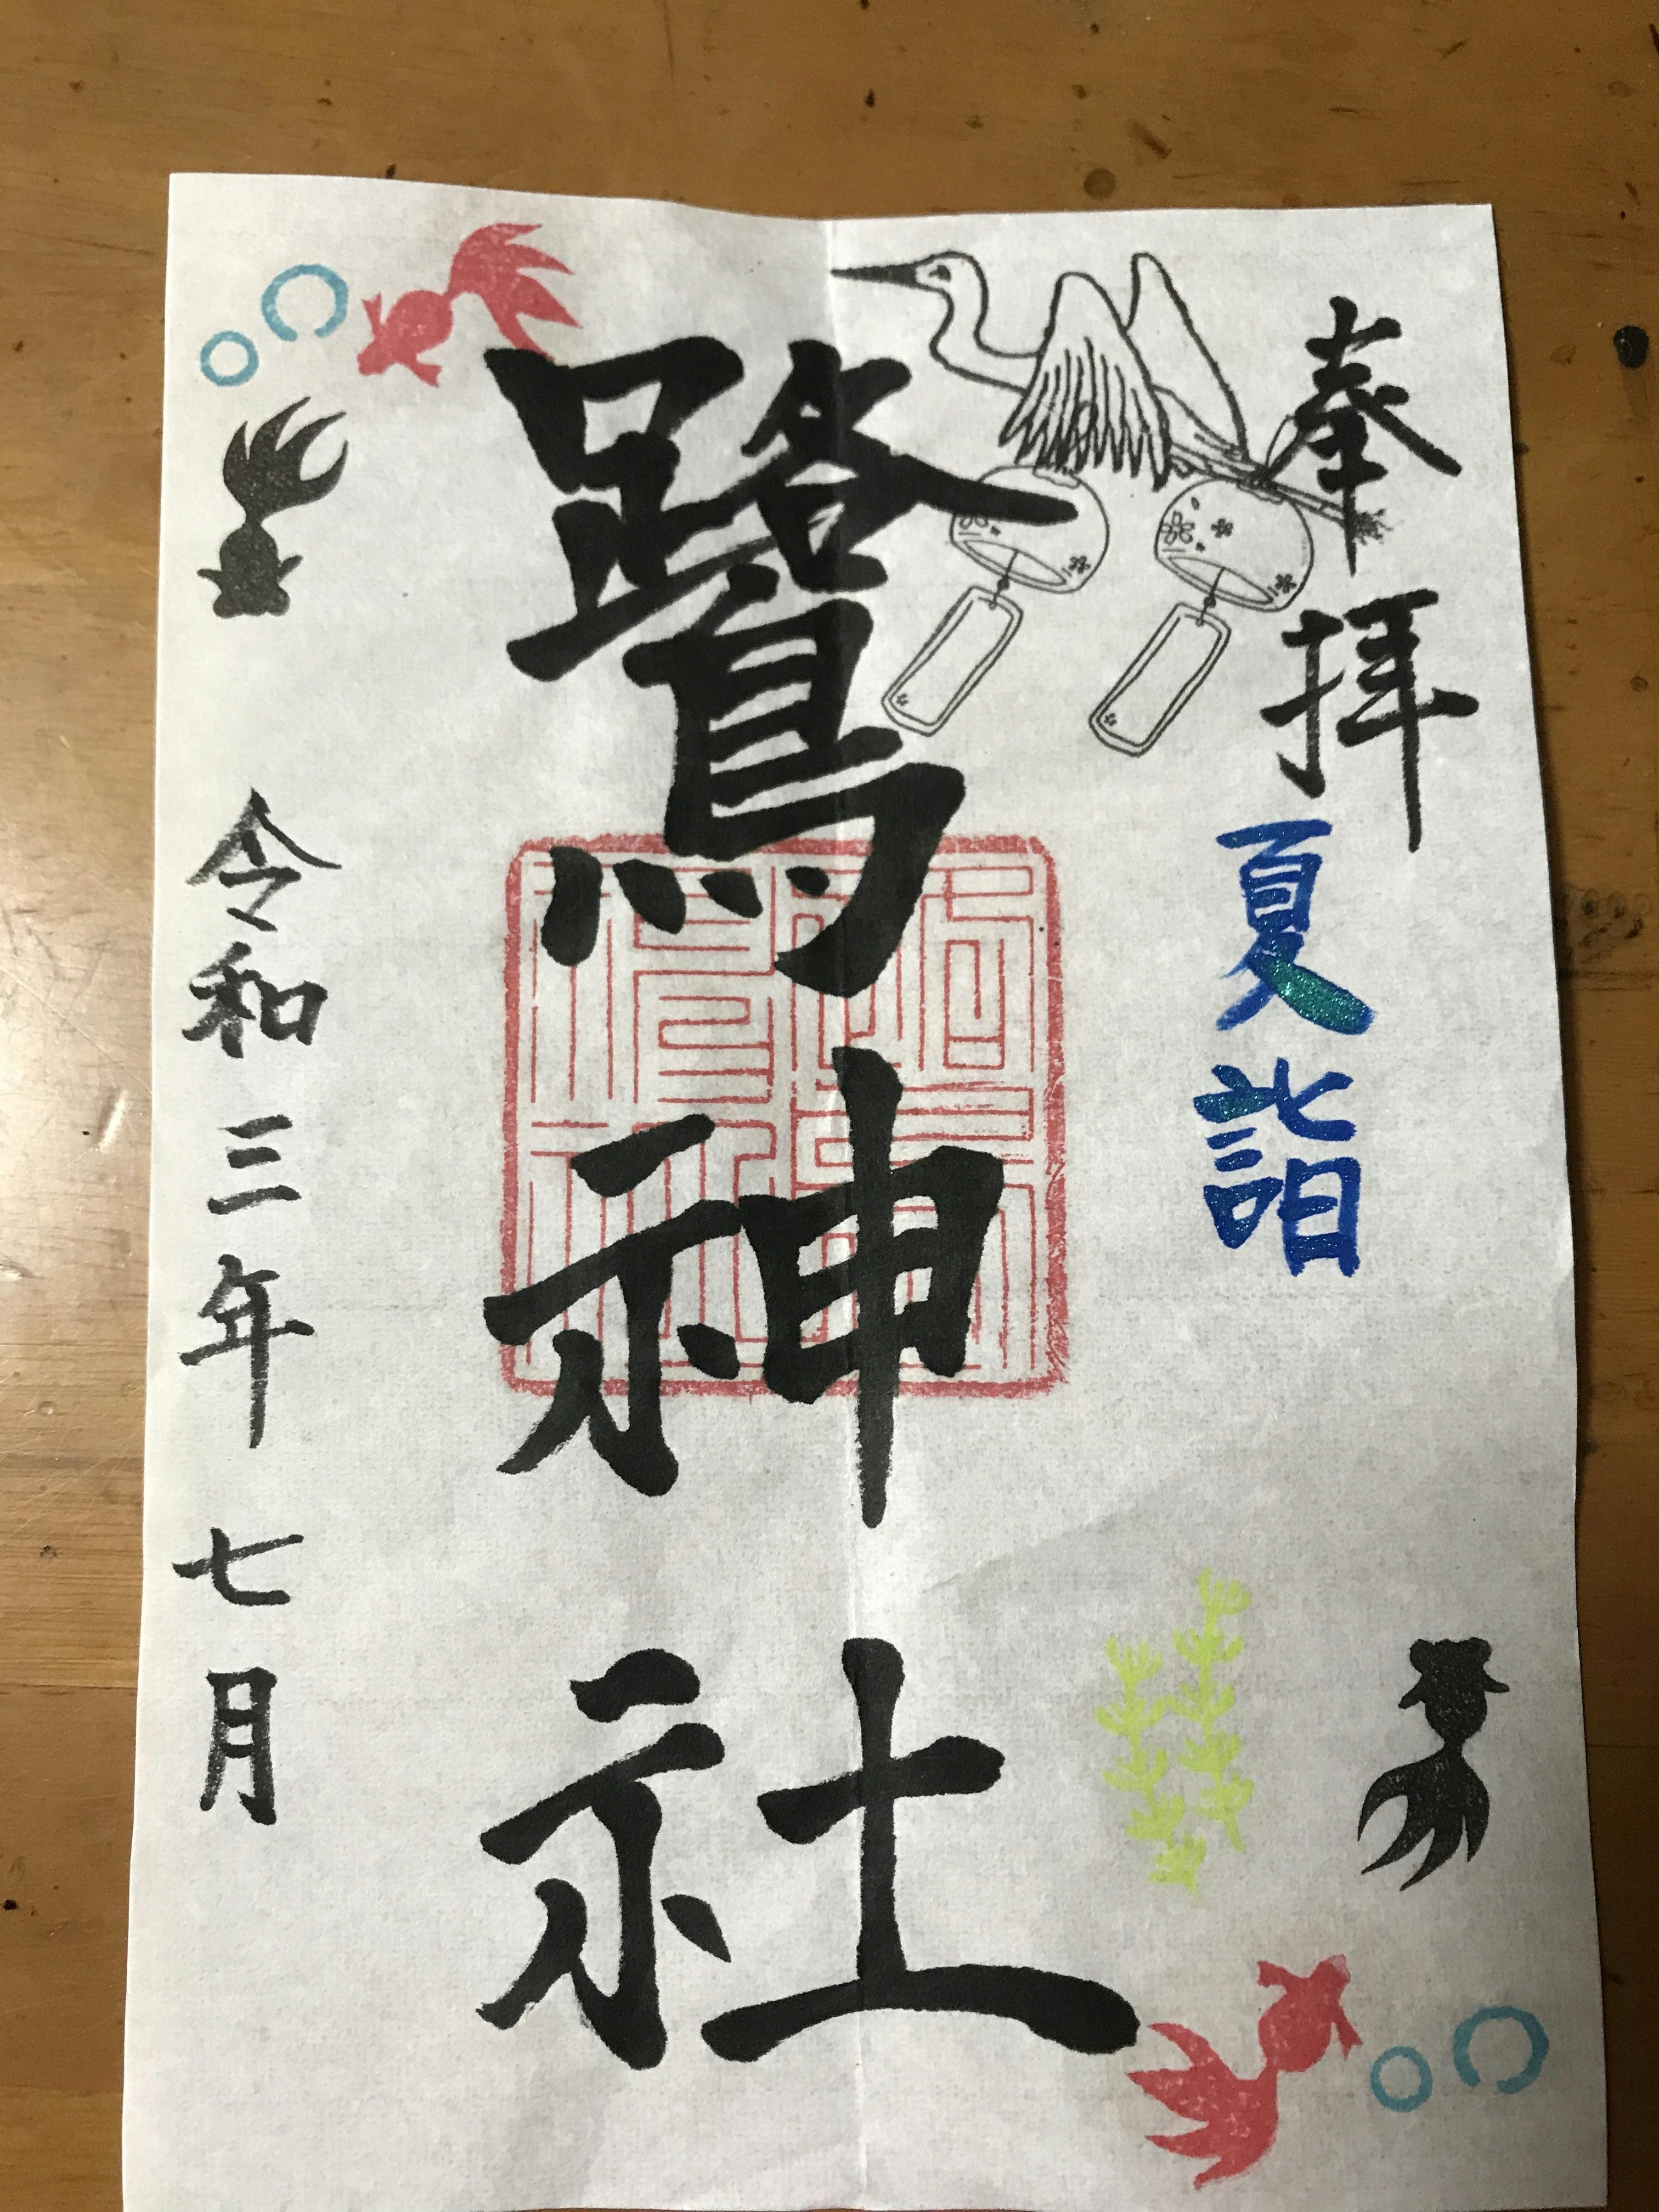 奉拝
夏詣
鷺神社
令和三年七月